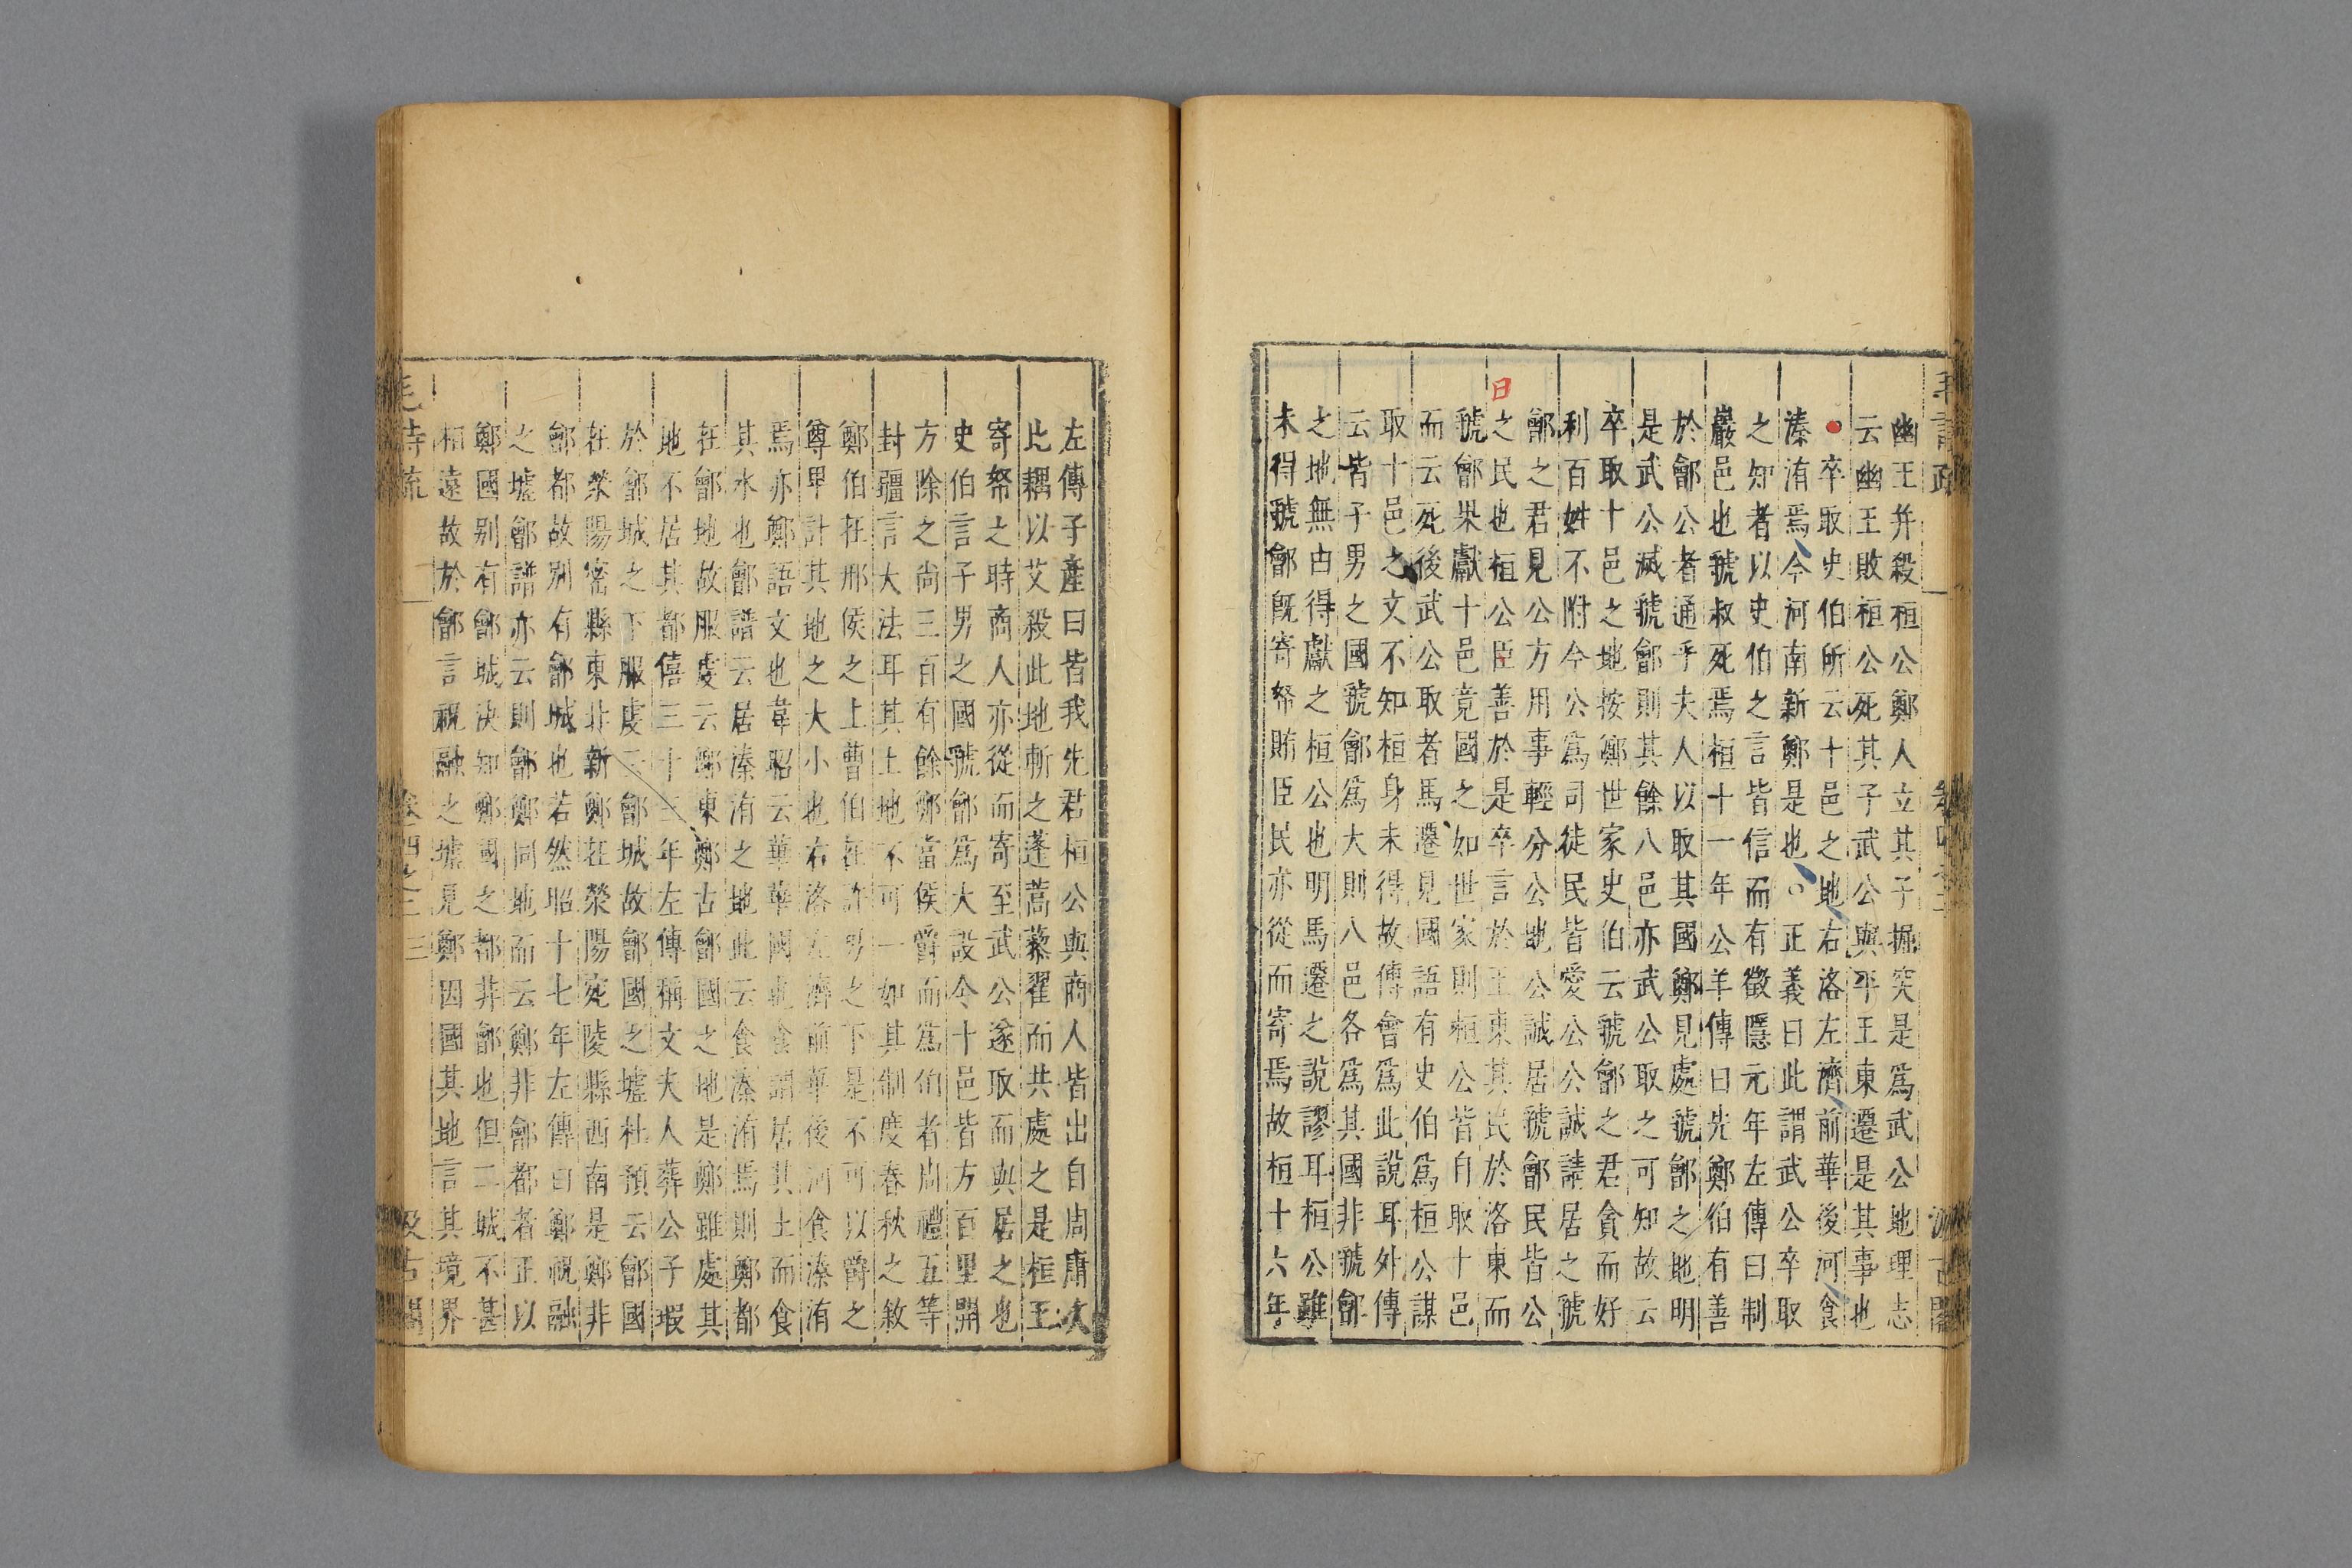 幽王并殺桓公鄭人立其子掘突是爲武公地理志
云幽王敗桓公死其子武公與平王東遷是其事也
卒取史伯所云十邑之地右洛左濟前華後河食
溱洧焉今河南新鄭是也○正義曰此謂武公卒取
之知者以史伯之言皆信而有徵隱元年左傳曰制
巖邑也虢叔死焉桓十一年公羊傳曰先鄭伯有善
於鄶公者通乎夫人以取其國鄭見處虢鄶之地明
是武公滅虢鄶則其餘八邑亦武公取之可知故云
卒取十邑之地按鄭世家史伯云虢鄶之君貪而好
利百姓不附今公爲司徒民皆愛公公誠請居之虢
鄶之君見公方用事輕分公地公誠居虢鄶民皆公
日
之民也桓公臣善於是卒言於王東其民於洛東而
虢鄶果獻十邑竟國之如世家則桓公皆自取十邑
而云死後武公取者馬遷見國語有史伯爲桓公謀
取十邑之文不知桓身未得故傅會爲此說耳外傳
云皆子男之國虢鄶爲大則八邑各爲其國非虢鄶
之地無由得獻之桓公也明馬遷之說謬耳桓公雖
未得虢鄶旣寄帑賄臣民亦從而寄焉故桓十六年
左傳子產曰皆我先君桓公與商人皆出自周庸次
比耦以艾殺此地斬之蓬蒿藜翟而共處之是桓王
寄帑之時商人亦從而寄至武公遂取而與居之也
史伯言子男之國虢鄶爲大設令十邑皆方百里開
方除之尚三百有餘鄭當侯爵而爲伯者周禮五等
封疆言大法耳其土地不可一如其制度春秋之敘
鄭伯在邢侯之上曹伯在許男之下是不可以爵之
尊卑計其地之大小也右洛左濟前華後河食溱洧
焉亦鄭語文也韋昭云華華國也食謂居其土而食
其水也鄶譜云居溱洧之地此云食溱洧焉則鄭都
在鄶地故服虔云鄭東鄭古鄶國之地是鄭雖處其
地不居其都僖三十三年左傳稱文夫人葬公子瑕
於鄶城之下服虔云鄶城故鄶國之墟杜預云鄶國
在滎陽密縣東北新鄭在滎陽宛陵縣西南是鄭非
鄶都故別有鄶城也若然昭十七年左傳曰鄭祝融
之墟鄶譜亦云則鄶鄭同地而云鄭非鄶都者正以
鄭國別有鄶城決知鄭國之都非鄶也但二城不甚
相遠故於鄶言祝融之墟見鄭因國其地言其境界
毛詩疏 卷四之三 三 汲古閣